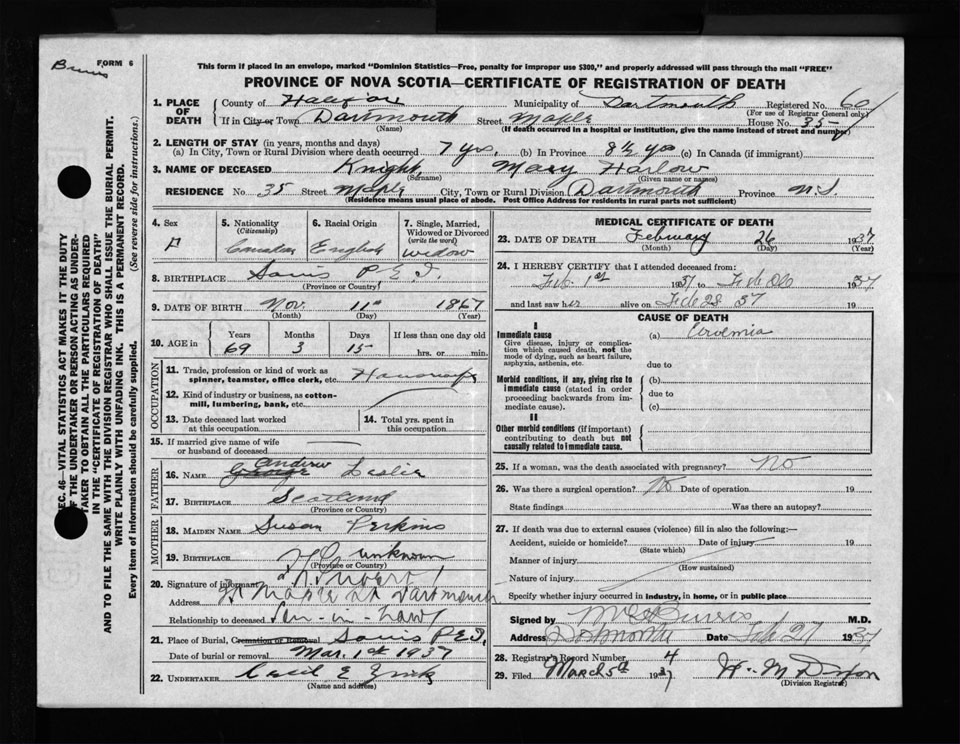 FORM 6
This form if placed in an envelope, marked "Dominion Statistics—Free, penalty for improper use $300," and properly addressed will pass through the mail "FREE"
PROVINCE OF NOVA SCOTIA—CERTIFICATE OF REGISTRATION OF DEATH
1. PLACE OF DEATH County of Halifax Municipality of Dartmouth Registered No. 60
(For use of Registrar General only)
If in City or Town Dartmouth Street Maple House No. 35
(Name) (If death occurred in a hospital or institution, give the name instead of street and number)
2. LENGTH OF STAY (in years, months and days)
(a) In City, Town or Rural Division where death occurred 7 yrs, (b) In Province 8½ yrs (c) In Canada (if immigrant)
3. NAME OF DECEASED Knight, Mary Harlow
(Surname) (Given name or names)
RESIDENCE No. 35 Street Maple City, Town or Rural Division Dartmouth Province N.S.
(Residence means usual place of abode. Post Office Address for residents in rural parts not sufficient)
4. Sex F
5. Nationality (Citizenship) Canadian
6. Racial Origin English
7. Single, Married, Widowed or Divorced (write the word) widow
8. BIRTHPLACE Souris P.E.I.
(Province or Country)
9. DATE OF BIRTH Nov. 11th 1867
(Month) (Day) (Year)
10. AGE in Years 69 Months 3 Days 15 If less than one day old hrs. or min.
OCCUPATION
11. Trade, profession or kind of work as spinner, teamster, office clerk, etc. Housewife
12. Kind of industry or business, as cotton-mill, lumbering, bank, etc.
13. Date deceased last worked at this occupation
14. Total yrs. spent in this occupation
15. If married give name of wife or husband of deceased
FATHER
16. NAME George Andrew Leslie
17. BIRTHPLACE Scotland
(Province or Country)
MOTHER
18. MAIDEN NAME Susan Perkins
19. BIRTHPLACE unknown
(Province or Country)
20. Signature of informant
Address Maple St Dartmouth
Relationship to deceased Son-in-law
21. Place of Burial, Cremation or Removal Souris P.E.I.
Date of burial or removal Mar. 1st 1937
22. UNDERTAKER Cecil E. Zink
(Name and address)
MEDICAL CERTIFICATE OF DEATH
23. DATE OF DEATH February 26 1937
(Month) (Day) (Year)
24. I HEREBY CERTIFY that I attended deceased from:
Feb. 1st 1937 to Feb 26 1937
and last saw her alive on Feb 25 37 19
CAUSE OF DEATH
I
Immediate cause
Give disease, injury or complication which caused death, not the mode of dying, such as heart failure, asphyxia, asthenia, etc.
(a)
due to
Morbid conditions, if any, giving rise to immediate cause (stated in order proceeding backwards from immediate cause).
(b)
due to
(c)
II
Other morbid conditions (if important) contributing to death but not causally related to immediate cause.
25. If a woman, was the death associated with pregnancy? No
26. Was there a surgical operation? No Date of operation 19
State findings Was there an autopsy?
27. If death was due to external causes (violence) fill in also the following:—
Accident, suicide or homicide? Date of injury 19
(State which)
Manner of injury
(How sustained)
Nature of injury
Specify whether injury occurred in industry, in home, or in public place
Signed by M.D.
Address Dartmouth Date Feb 27 1937
28. Registrar's Record Number 4
29. Filed March 5th 1937
(Division Registrar)
SEC. 46—VITAL STATISTICS ACT MAKES IT THE DUTY
OF THE UNDERTAKER OR PERSON ACTING AS UNDER-
TAKER TO OBTAIN ALL THE PARTICULARS REQUIRED
IN THE "CERTIFICATE OF REGISTRATION OF DEATH"
AND TO FILE THE SAME WITH THE DIVISION REGISTRAR WHO SHALL ISSUE THE BURIAL PERMIT.
WRITE PLAINLY WITH UNFADING INK. THIS IS A PERMANENT RECORD.
Every item of information should be carefully supplied. (See reverse side for instructions.)